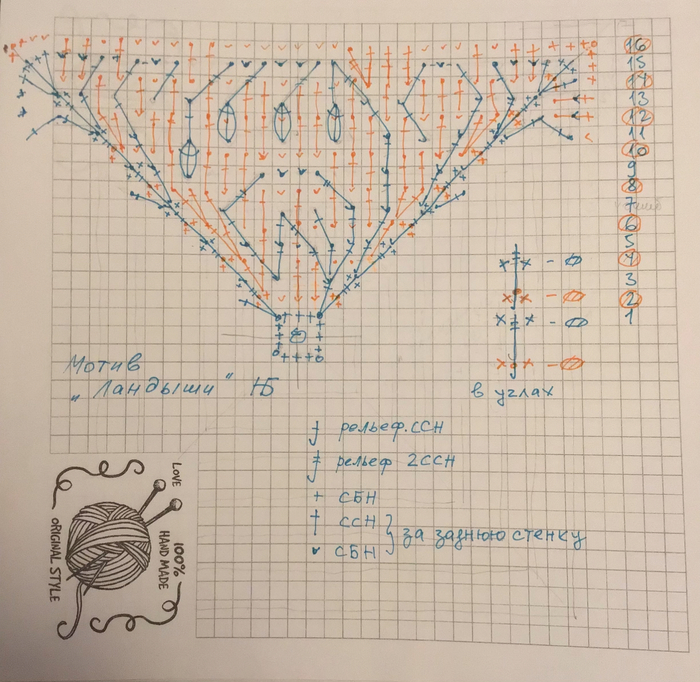 16
15
14
13
12
11
10
9
8
7
6
5
4
3
2
1
Мотив
"Ландыши" НБ
в углах
рельеф.ССН
рельеф 2ССН
СБН
ССН
СБН
за заднюю стенку
LOVE
100%
HAND MADE
ORIGINAL STYLE